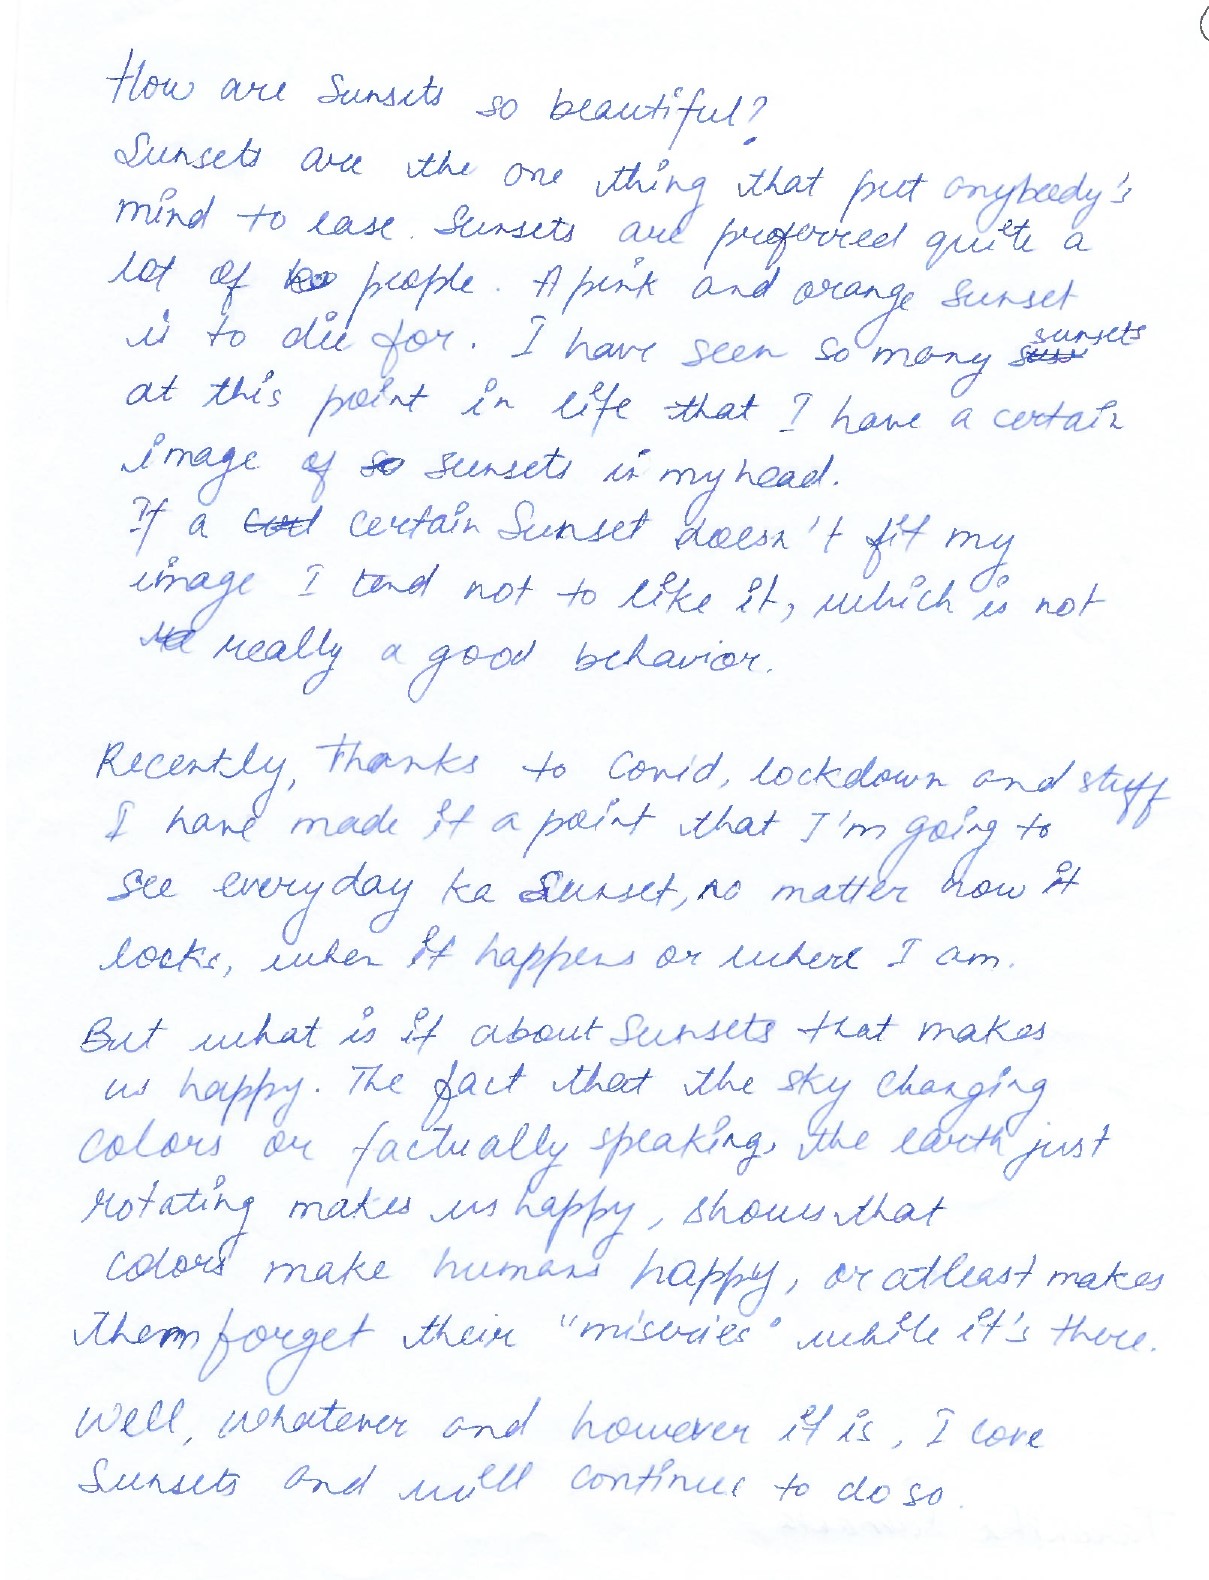 How are Sunsets so beautiful?
Sunsets are the one thing that put anybody's
mind to ease. Sunsets are preferred quite a
lot of people. A pink and orange Sunset
is to die for. I have seen so many sunsets
at this point in life that I have a certain
image of sunsets in my head.
If a certain Sunset doesn't fit my
image I tend not to like it, which is not
really a good behavior.
Recently, Thanks to Covid, lockdown and stuff
I have made it a point that I'm going to
see everyday ka Sunset, no matter how it
looks, when it happens or where I am.
But what is it about Sunsets that makes
us happy. The fact that the sky changing
colors or factually speaking, the earth just
rotating makes us happy, shows that
colors make humans happy, or atleast makes
them forget their "miseries" while it's there.
Well, whatever and however it is, I love
Sunsets and will continue to do so.